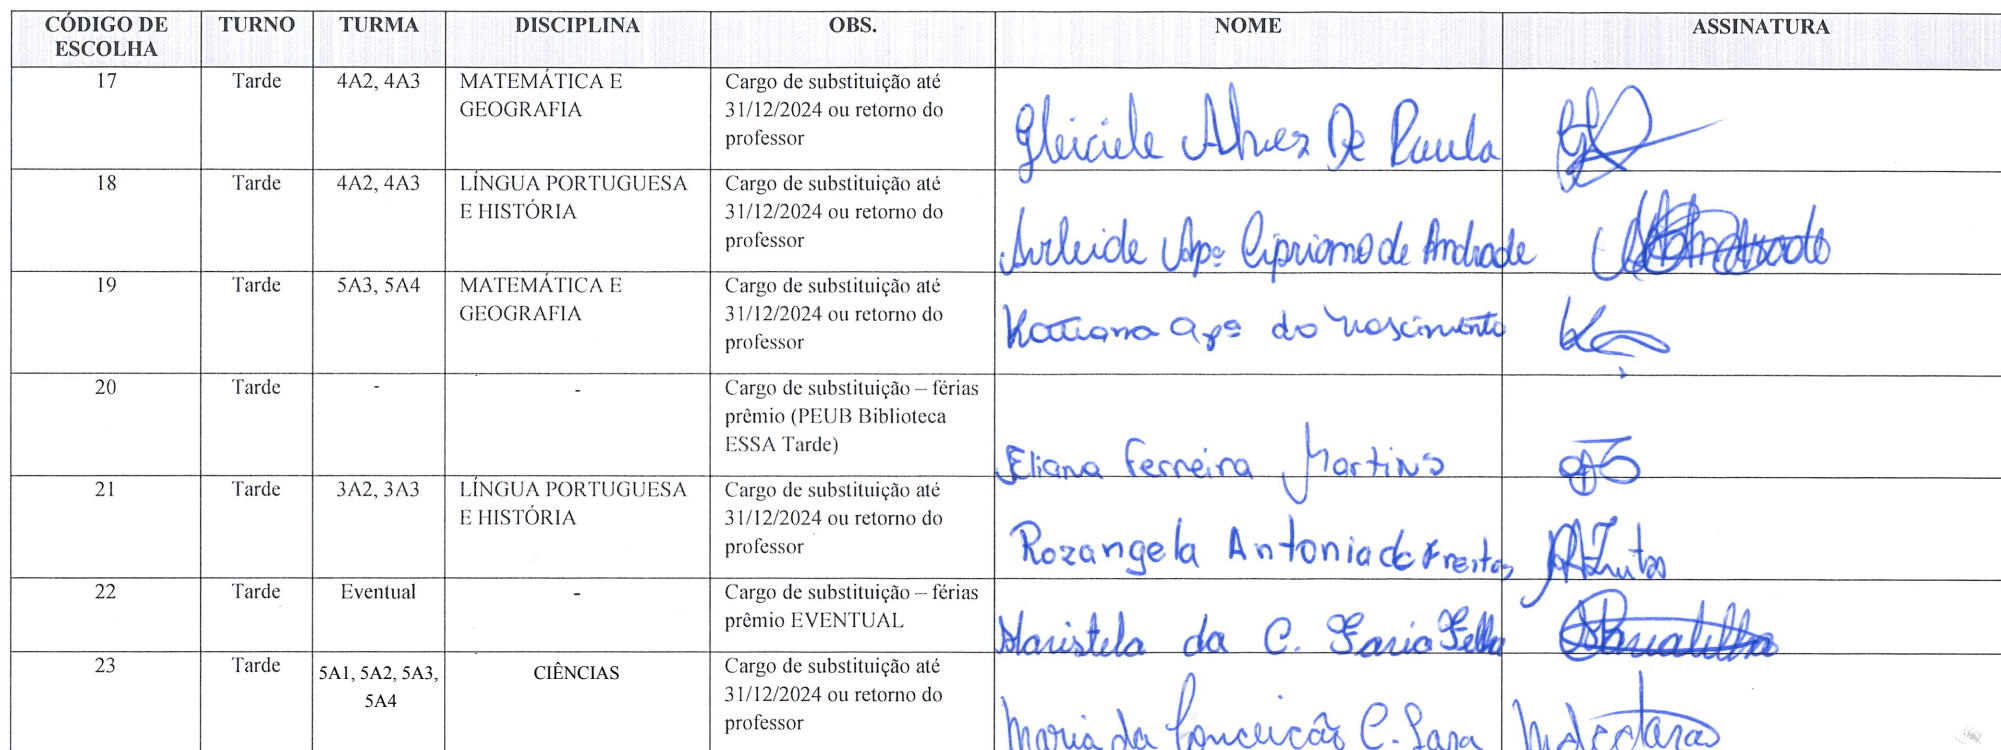 CÓDIGO DE ESCOLHA TURNO TURMA DISCIPLINA OBS. NOME ASSINATURA
17 Tarde 4A2, 4A3 MATEMÁTICA E Cargo de substituição até
GEOGRAFIA 31/12/2024 ou retorno do
professor
Gleiciele Alves De Paula
18 Tarde 4A2, 4A3 LÍNGUA PORTUGUESA Cargo de substituição até
E HISTÓRIA 31/12/2024 ou retorno do
professor
Arleide Apª Cipriano de Andrade
19 Tarde 5A3, 5A4 MATEMÁTICA E Cargo de substituição até
GEOGRAFIA 31/12/2024 ou retorno do
professor
Katiana Apª do Nascimento
20 Tarde - - Cargo de substituição – férias
prêmio (PEUB Biblioteca
ESSA Tarde)
Eliana Ferreira Martins
21 Tarde 3A2, 3A3 LÍNGUA PORTUGUESA Cargo de substituição até
E HISTÓRIA 31/12/2024 ou retorno do
professor
Rozangela Antonia de Freitas
22 Tarde Eventual - Cargo de substituição – férias
prêmio EVENTUAL
Maristela da C. Faria
23 Tarde 5A1, 5A2, 5A3, CIÊNCIAS Cargo de substituição até
5A4 31/12/2024 ou retorno do
professor
Maria da Conceição C.